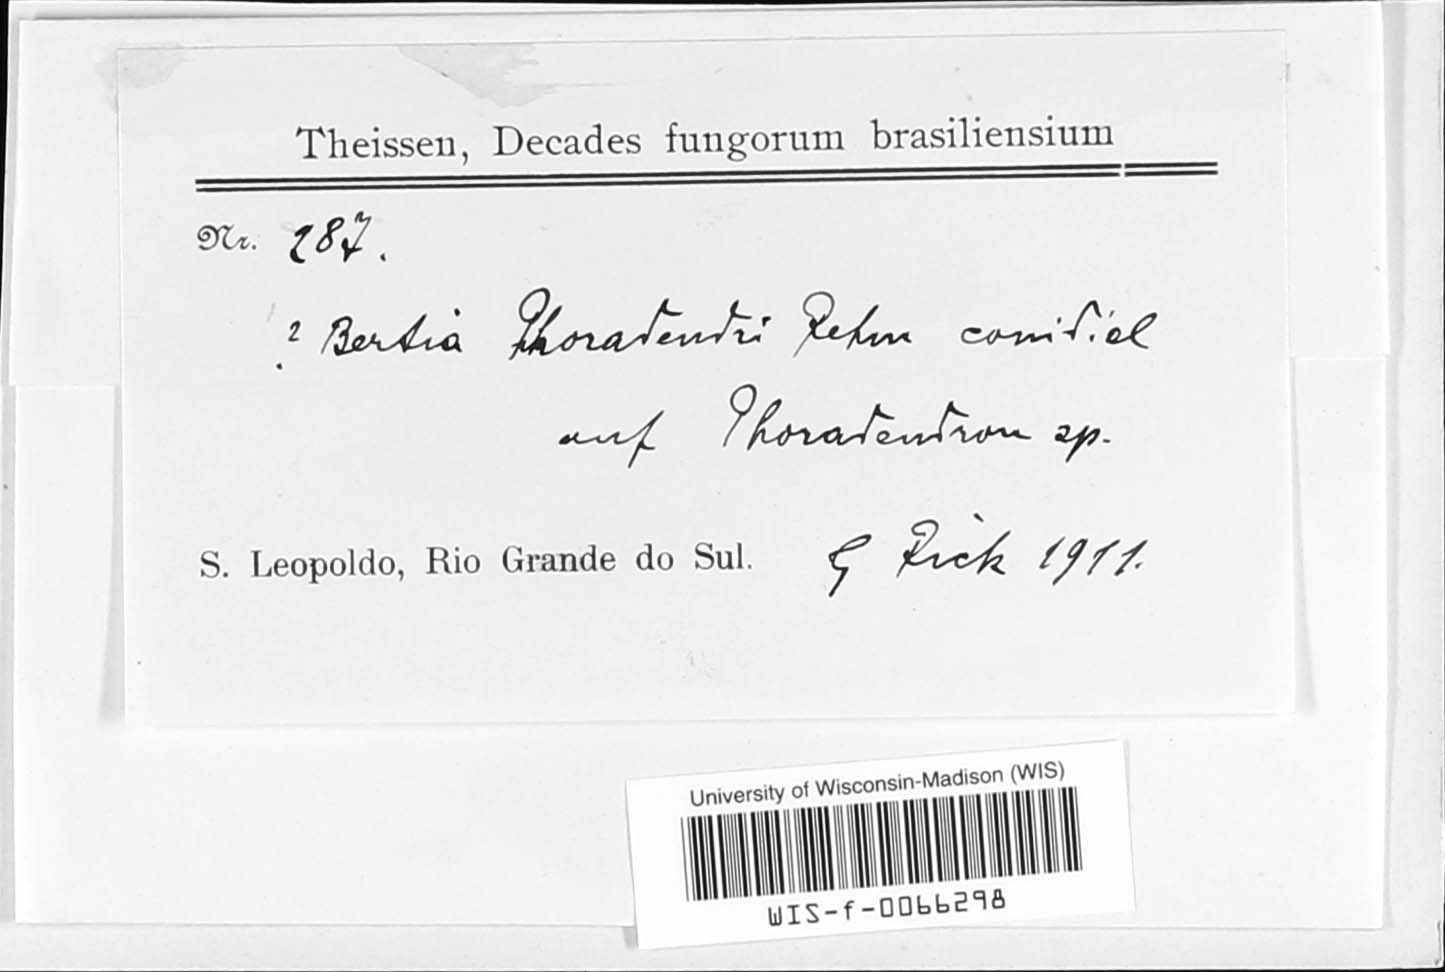 Theissen, Decades fungorum brasiliensium
Nr. 287.
? Bertia Phoradendri Rehm conidiel
auf Phoradendron sp.
S. Leopoldo, Rio Grande do Sul. G Rick 1911.
University of Wisconsin-Madison (WIS)
WIS-f-0066298